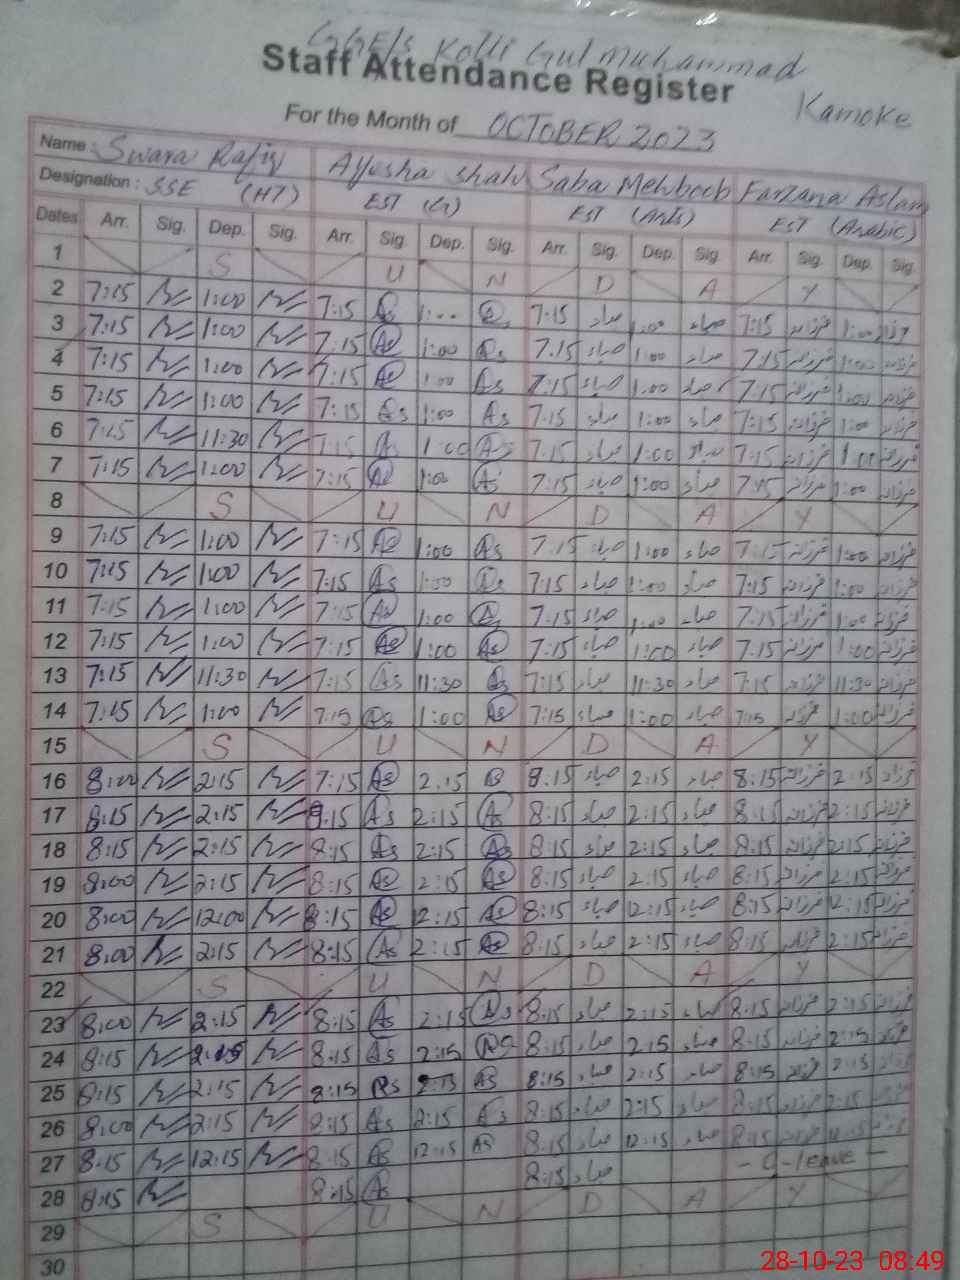 GGE/s Kolli Gul Muhammad
Staff Attendance Register
Kamoke
For the Month of OCTOBER 2023
Name: Swara Rafiq Ayusha Shah Saba Mehboob Farzana Aslam
Designation: SSE (HT) EST (G) EST (Arts) EST (Arabic)
Dates Arr. Sig. Dep. Sig. Arr. Sig. Dep. Sig. Arr. Sig. Dep. Sig. Arr. Sig. Dep. Sig.
1 S U N D A Y
2 7:15 1:00 7:15 1:00 7:15 صباء 1:00 صباء 7:15 فرزانہ 1:00
3 7:15 1:00 7:15 1:00 7:15 صباء 1:00 صباء 7:15 فرزانہ 1:00 فرزانہ
4 7:15 1:00 7:15 1:00 As 7:15 صباء 1:00 صباء 7:15 فرزانہ 1:00 فرزانہ
5 7:15 1:00 7:15 As 1:00 As 7:15 صباء 1:00 صباء 7:15 فرزانہ 1:00 فرزانہ
6 7:15 11:30 7:15 As 1:00 As 7:15 صباء 1:00 صباء 7:15 فرزانہ 1:00 فرزانہ
7 7:15 1:00 7:15 1:00 As 7:15 صباء 1:00 صباء 7:15 فرزانہ 1:00 فرزانہ
8 S U N D A Y
9 7:15 1:00 7:15 1:00 As 7:15 صباء 1:00 صباء 7:15 فرزانہ 1:00 فرزانہ
10 7:15 1:00 7:15 As 1:00 As 7:15 صباء 1:00 صباء 7:15 فرزانہ 1:00 فرزانہ
11 7:15 1:00 7:15 As 1:00 7:15 صباء 1:00 صباء 7:15 فرزانہ 1:00 فرزانہ
12 7:15 1:00 7:15 1:00 As 7:15 صباء 1:00 صباء 7:15 فرزانہ 1:00 فرزانہ
13 7:15 11:30 7:15 As 11:30 As 7:15 صباء 11:30 صباء 7:15 فرزانہ 11:30 فرزانہ
14 7:15 1:00 7:15 As 1:00 As 7:15 صباء 1:00 صباء 7:15 فرزانہ 1:00 فرزانہ
15 S U N D A Y
16 8:00 2:15 7:15 As 2:15 8:15 صباء 2:15 صباء 8:15 فرزانہ 2:15 فرزانہ
17 8:15 2:15 8:15 As 2:15 As 8:15 صباء 2:15 صباء 8:15 فرزانہ 2:15 فرزانہ
18 8:15 2:15 8:15 As 2:15 As 8:15 صباء 2:15 صباء 8:15 فرزانہ 2:15 فرزانہ
19 8:00 2:15 8:15 As 2:15 As 8:15 صباء 2:15 صباء 8:15 فرزانہ 2:15 فرزانہ
20 8:00 12:00 8:15 As 12:15 As 8:15 صباء 12:15 صباء 8:15 فرزانہ 12:15 فرزانہ
21 8:00 2:15 8:15 As 2:15 As 8:15 صباء 2:15 صباء 8:15 فرزانہ 2:15 فرزانہ
22 S U N D A Y
23 8:00 2:15 8:15 As 2:15 As 8:15 صباء 2:15 صباء 8:15 فرزانہ 2:15 فرزانہ
24 8:15 2:15 8:15 As 2:15 As 8:15 صباء 2:15 صباء 8:15 فرزانہ 2:15 فرزانہ
25 8:15 2:15 8:15 As 2:15 As 8:15 صباء 2:15 صباء 8:15 فرزانہ 2:15 فرزانہ
26 8:00 2:15 8:15 As 2:15 As 8:15 صباء 2:15 صباء 8:15 فرزانہ 2:15 فرزانہ
27 8:15 12:15 8:15 As 12:15 As 8:15 صباء 12:15 صباء 8:15 فرزانہ 12:15 فرزانہ
28 8:15 8:15 As 8:15 صباء - C-leave -
29 S U N D A Y
30
28-10-23 08:49